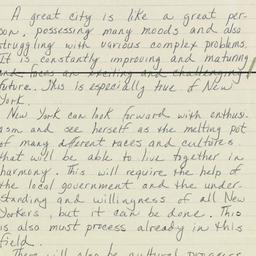 A great city is like a great per-
son, possessing many moods and also
struggling with various complex problems.
It is constantly improving and maturing
and faces an exciting and challenging
future. This is especially true of New
York.
New York can look forward with enthusi-
asm and see herself as the melting pot
of many different races and cultures
that will be able to live together in
harmony. This will require the help of
the local government and the under-
standing and willingness of all New
Yorkers, but it can be done. This
is also must process already in this
field.
There will also be cultural